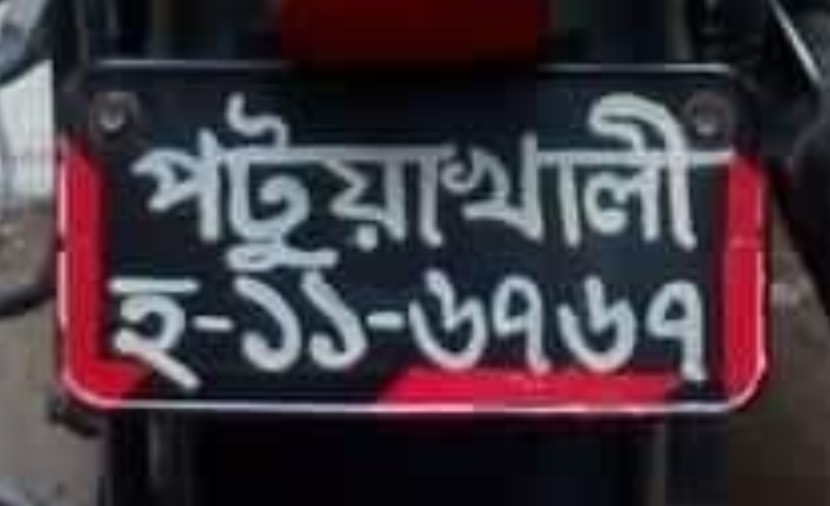 পটুয়াখালী
হ-১১-৬৭৬৭